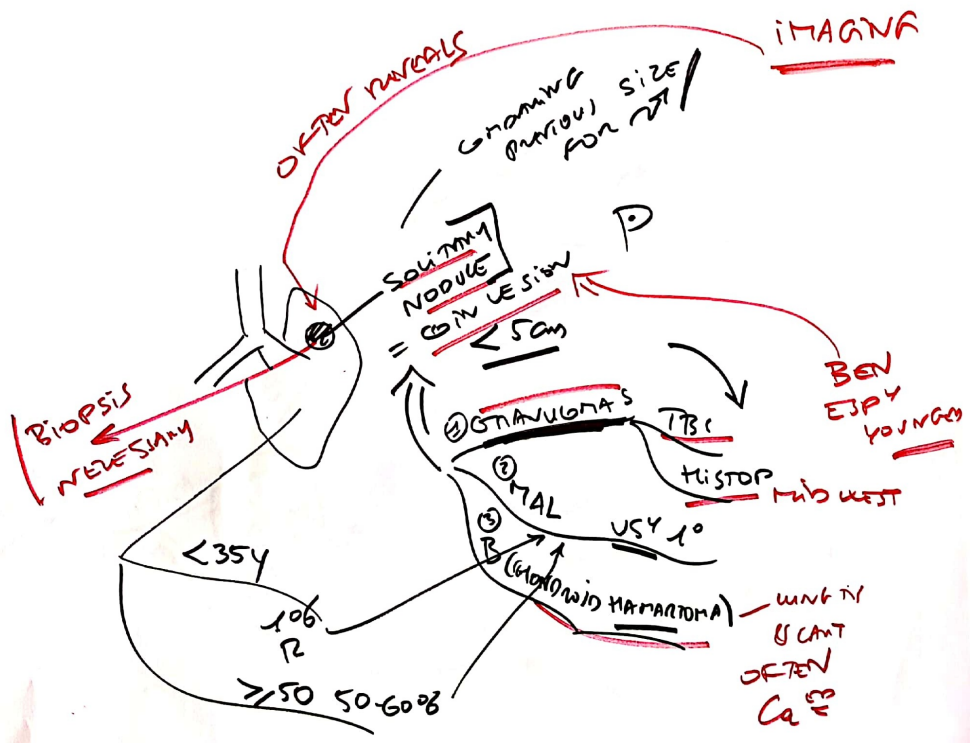 iMAGING
OFTEN REVEALS
COMPARING
PREVIOUS SIZE
FOR ↗
P
SOLITARY
NODULE
= COIN LESION
< 5 cm
BIOPSIS
NECESSARY
BEN
ESPY
YOUNGER
① GRANULOMAS
TBC
HISTOP
MIDWEST
② MAL
USY 1°
③ B (CHONDROID HAMARTOMA)
LUNG TI
& CART
OFTEN
Ca
<35y
1%
R
≥50 50-60%